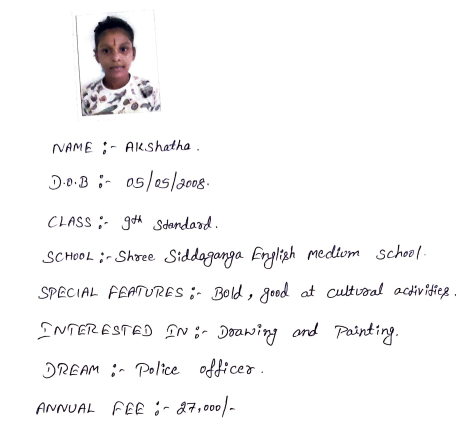 NAME :- Akshatha.
D.O.B :- 05/05/2008.
CLASS :- 9th Standard.
SCHOOL :- Shree Siddaganga English medium school.
SPECIAL FEATURES :- Bold, good at cultural activities.
INTERESTED IN :- Drawing and Painting.
DREAM :- Police officer.
ANNUAL FEE :- 27,000/-